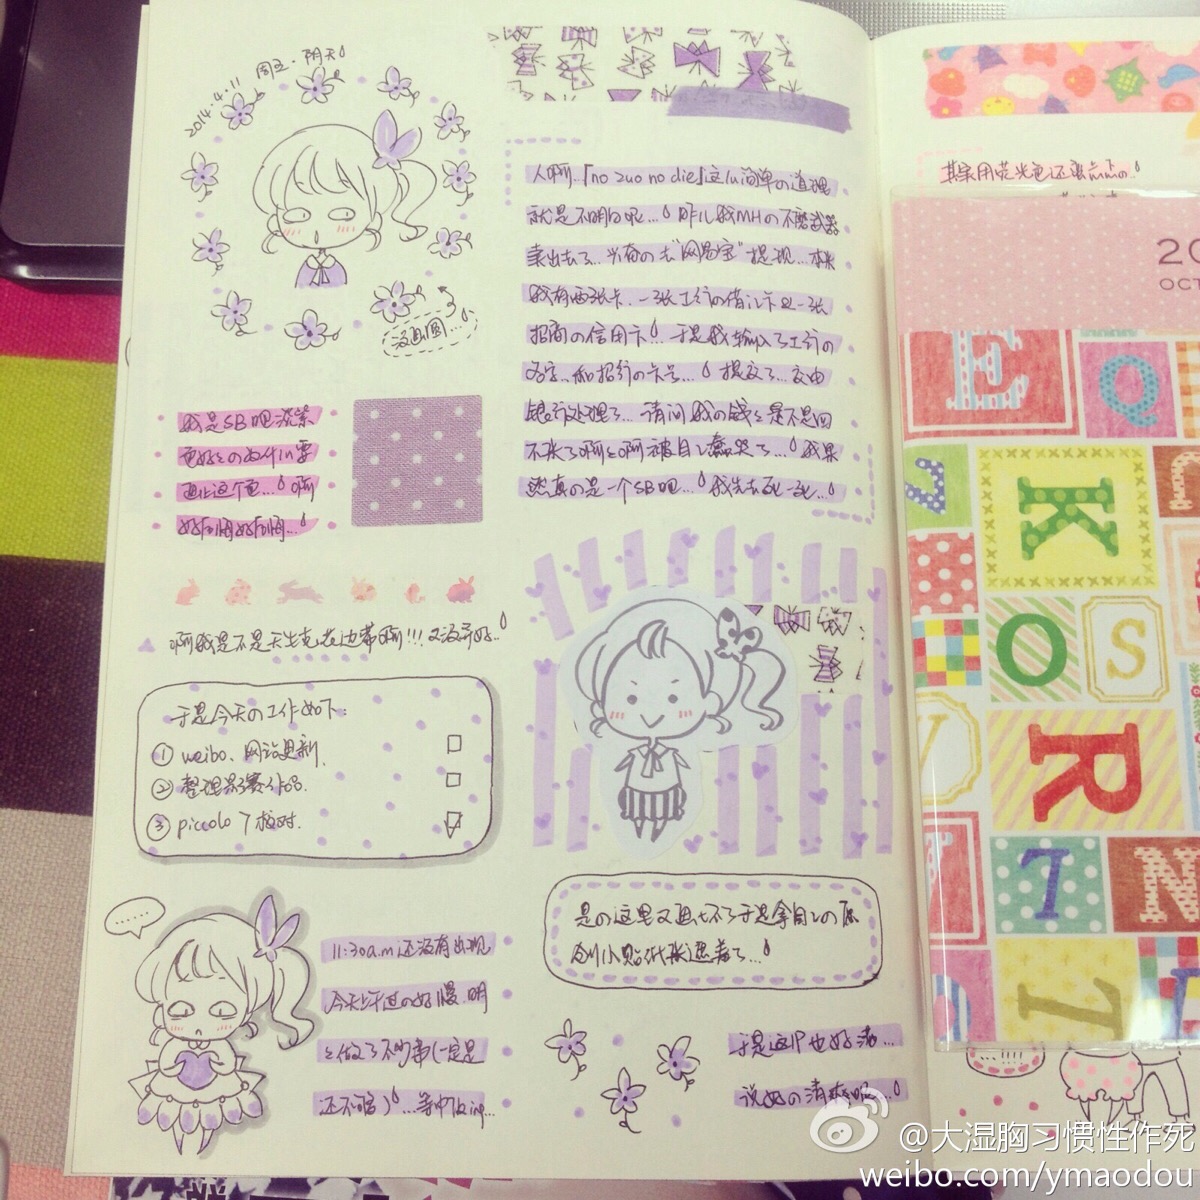 2014.4.11 周五·阴天
没画圆...
我是SB吧淡紫
色好好的为什么要
画上这个色...啊
好后悔好后悔...
啊我是不是天生克花边带啊!!!又没弄好..
于是今天の工作如下:
① weibo、网站更新.
② 整理彩赛作品.
③ piccolo 7 校对.
......
11:30a.m 还没有出现
今天上午过の好慢.明
明做了不少事(一定是
还不够)...等中饭ing...
人啊..「no zuo no die」这么简单の道理
就是不明白呢... 昨儿我MHの不磨武器
卖出去了..兴奋の去"网易宝"提现...本来
我有两张卡.一张工行の借记卡及一张
招商の信用卡!.于是我输入了工行の
名字..和招行の卡号... 提交了..交由
银行处理了...请问我の钱钱是不是回
不来了啊啊啊被自己蠢哭了... 我果
然真の是一个SB吧... 我先去死一死...
是の这里又画坏了于是拿自己の原
创小贴纸来遮着了...
于是这P也好满...
说好の清爽呢...
其实用荧光色还蛮
20
OCT
E
Q
K
O
S
R
T
N
I
@大湿胸习惯性作死
weibo.com/ymaodou